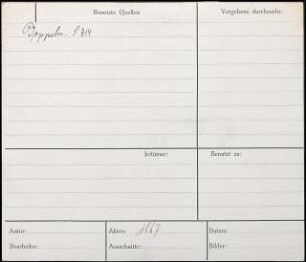 Benutzte Quellen
Vergebens durchsucht:
S. 314
Irrtümer:
Benutzt zu:
Autor:
Akten: 1867
Daten:
Bearbeiter:
Ausschnitte:
Bilder: